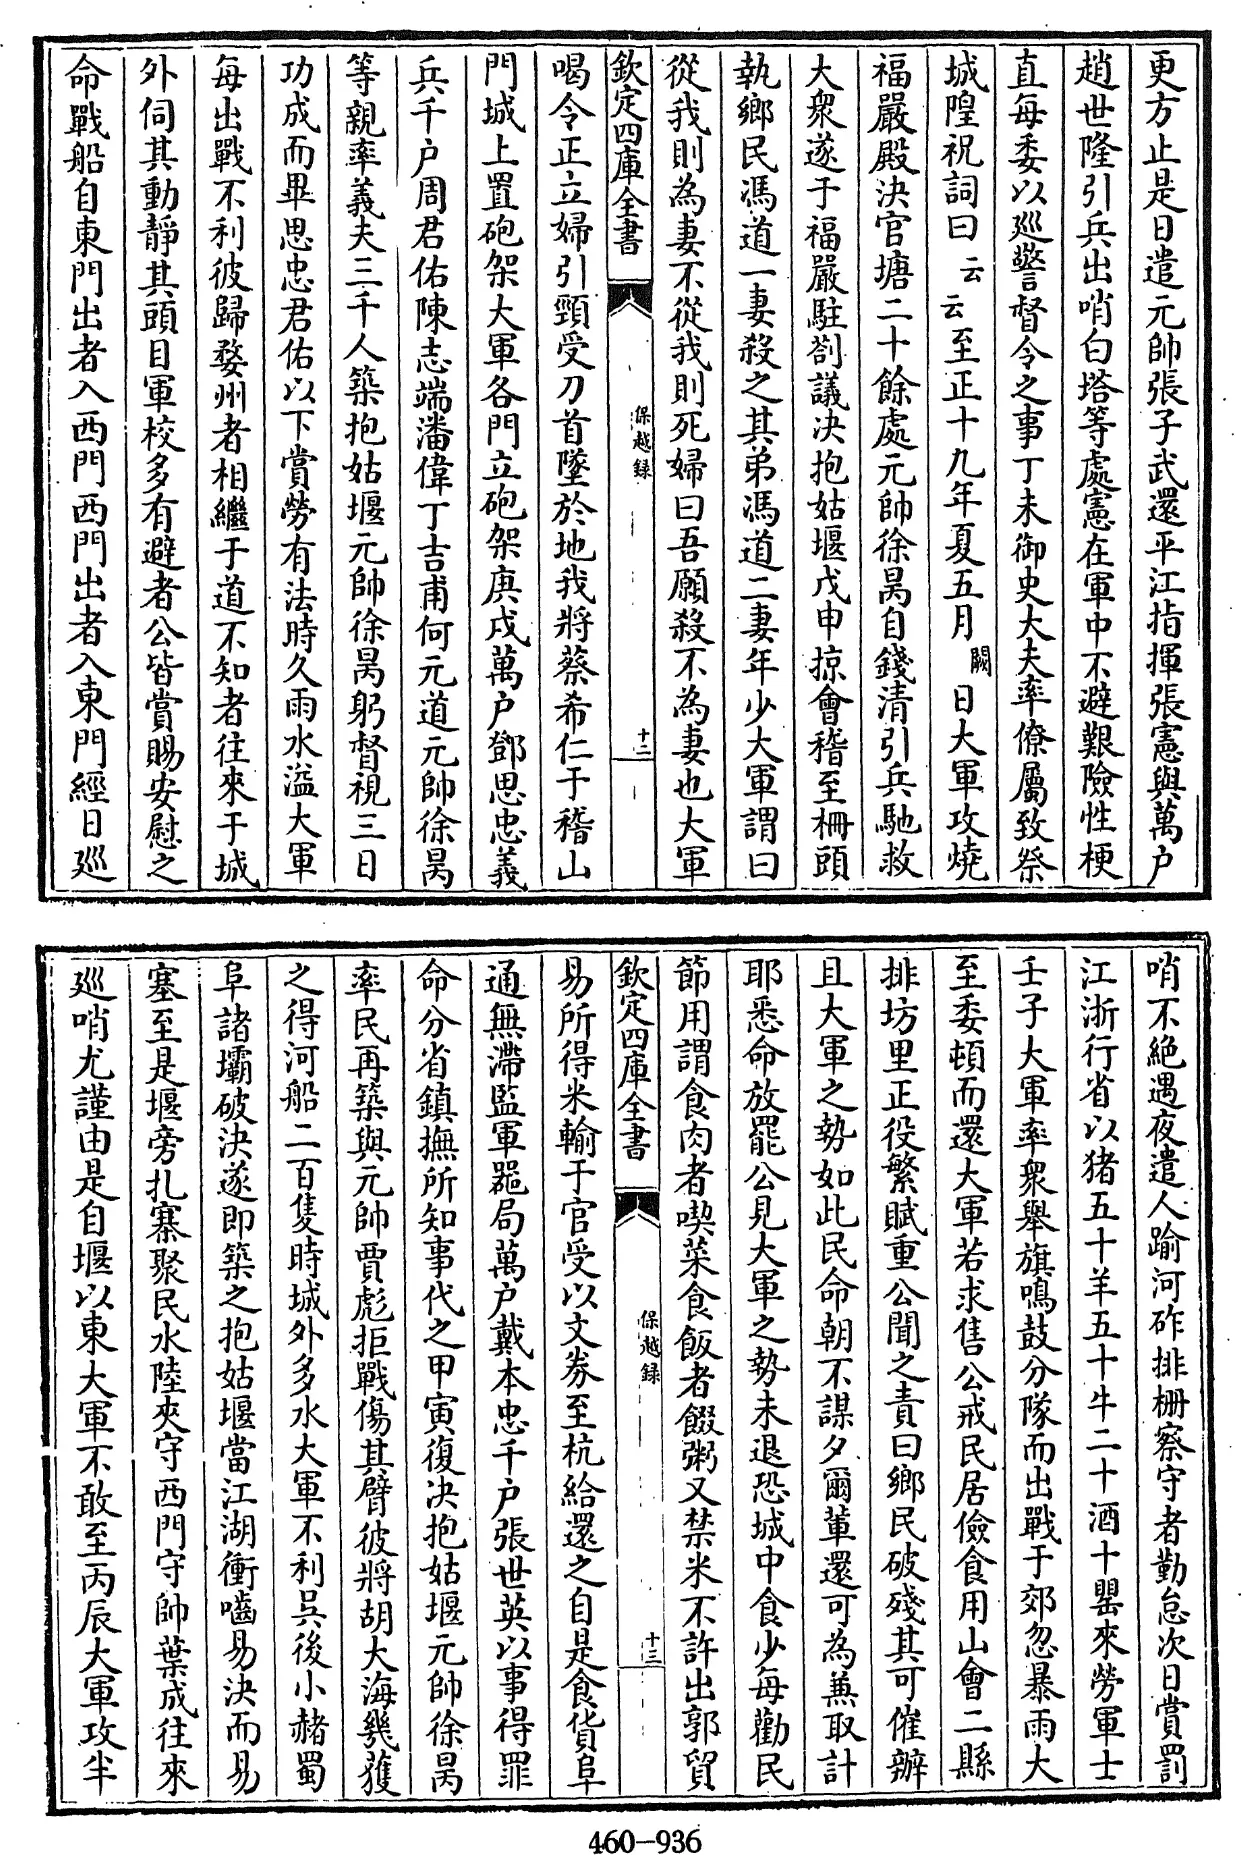 更方止是日遣元帥張子武還平江指揮張憲與萬户
趙世隆引兵出哨白塔等處憲在軍中不避艱險性梗
直每委以廵警督令之事丁未御史大夫率僚屬致祭
城隍祝詞曰云云至正十九年夏五月闕日大軍攻燒
福嚴殿決官塘二十餘處元帥徐昺自錢清引兵馳救
大衆遂于福嚴駐劄議決抱姑堰戊申掠會稽至柵頭
執鄉民馮道一妻殺之其弟馮道二妻年少大軍謂曰
從我則為妻不從我則死婦曰吾願殺不為妻也大軍
欽定四庫全書
保越録
十二
喝令正立婦引頸受刀首墜於地我將蔡希仁于稽山
門城上置砲架大軍各門立砲架庚戌萬户鄧思忠義
兵千户周君佑陳志端潘偉丁吉甫何元道元帥徐昺
等親率義夫三千人築抱姑堰元帥徐昺躬督視三日
功成而畢思忠君佑以下賞勞有法時久雨水溢大軍
每出戰不利彼歸婺州者相繼于道不知者往來于城
外伺其動静其頭目軍校多有避者公皆賞賜安慰之
命戰船自東門出者入西門西門出者入東門經日廵
哨不絶遇夜遣人踰河砟排柵察守者勤怠次日賞罰
江浙行省以猪五十羊五十牛二十酒十罌來勞軍士
壬子大軍率衆舉旗鳴鼓分隊而出戰于郊忽暴雨大
至委頓而還大軍若求售公戒民居儉食用山會二縣
排坊里正役繁賦重公聞之責曰鄉民破殘其可催辦
且大軍之勢如此民命朝不謀夕爾輩還可為兼取計
耶悉命放罷公見大軍之勢未退恐城中食少每勸民
節用謂食肉者喫菜食飯者餟粥又禁米不許出郭貿
欽定四庫全書
保越録
十三
易所得米輸于官受以文券至杭給還之自是食貨阜
通無滯監軍噐局萬户戴本忠千户張世英以事得罪
命分省鎮撫所知事代之甲寅復決抱姑堰元帥徐昺
率民再築與元帥賈彪拒戰傷其臂彼將胡大海幾獲
之得河船二百隻時城外多水大軍不利吳後小赭蜀
阜諸壩破決遂即築之抱姑堰當江湖衝嚙易決而易
塞至是堰旁扎寨聚民水陸夾守西門守帥葉成往來
廵哨尤謹由是自堰以東大軍不敢至丙辰大軍攻半
460-936